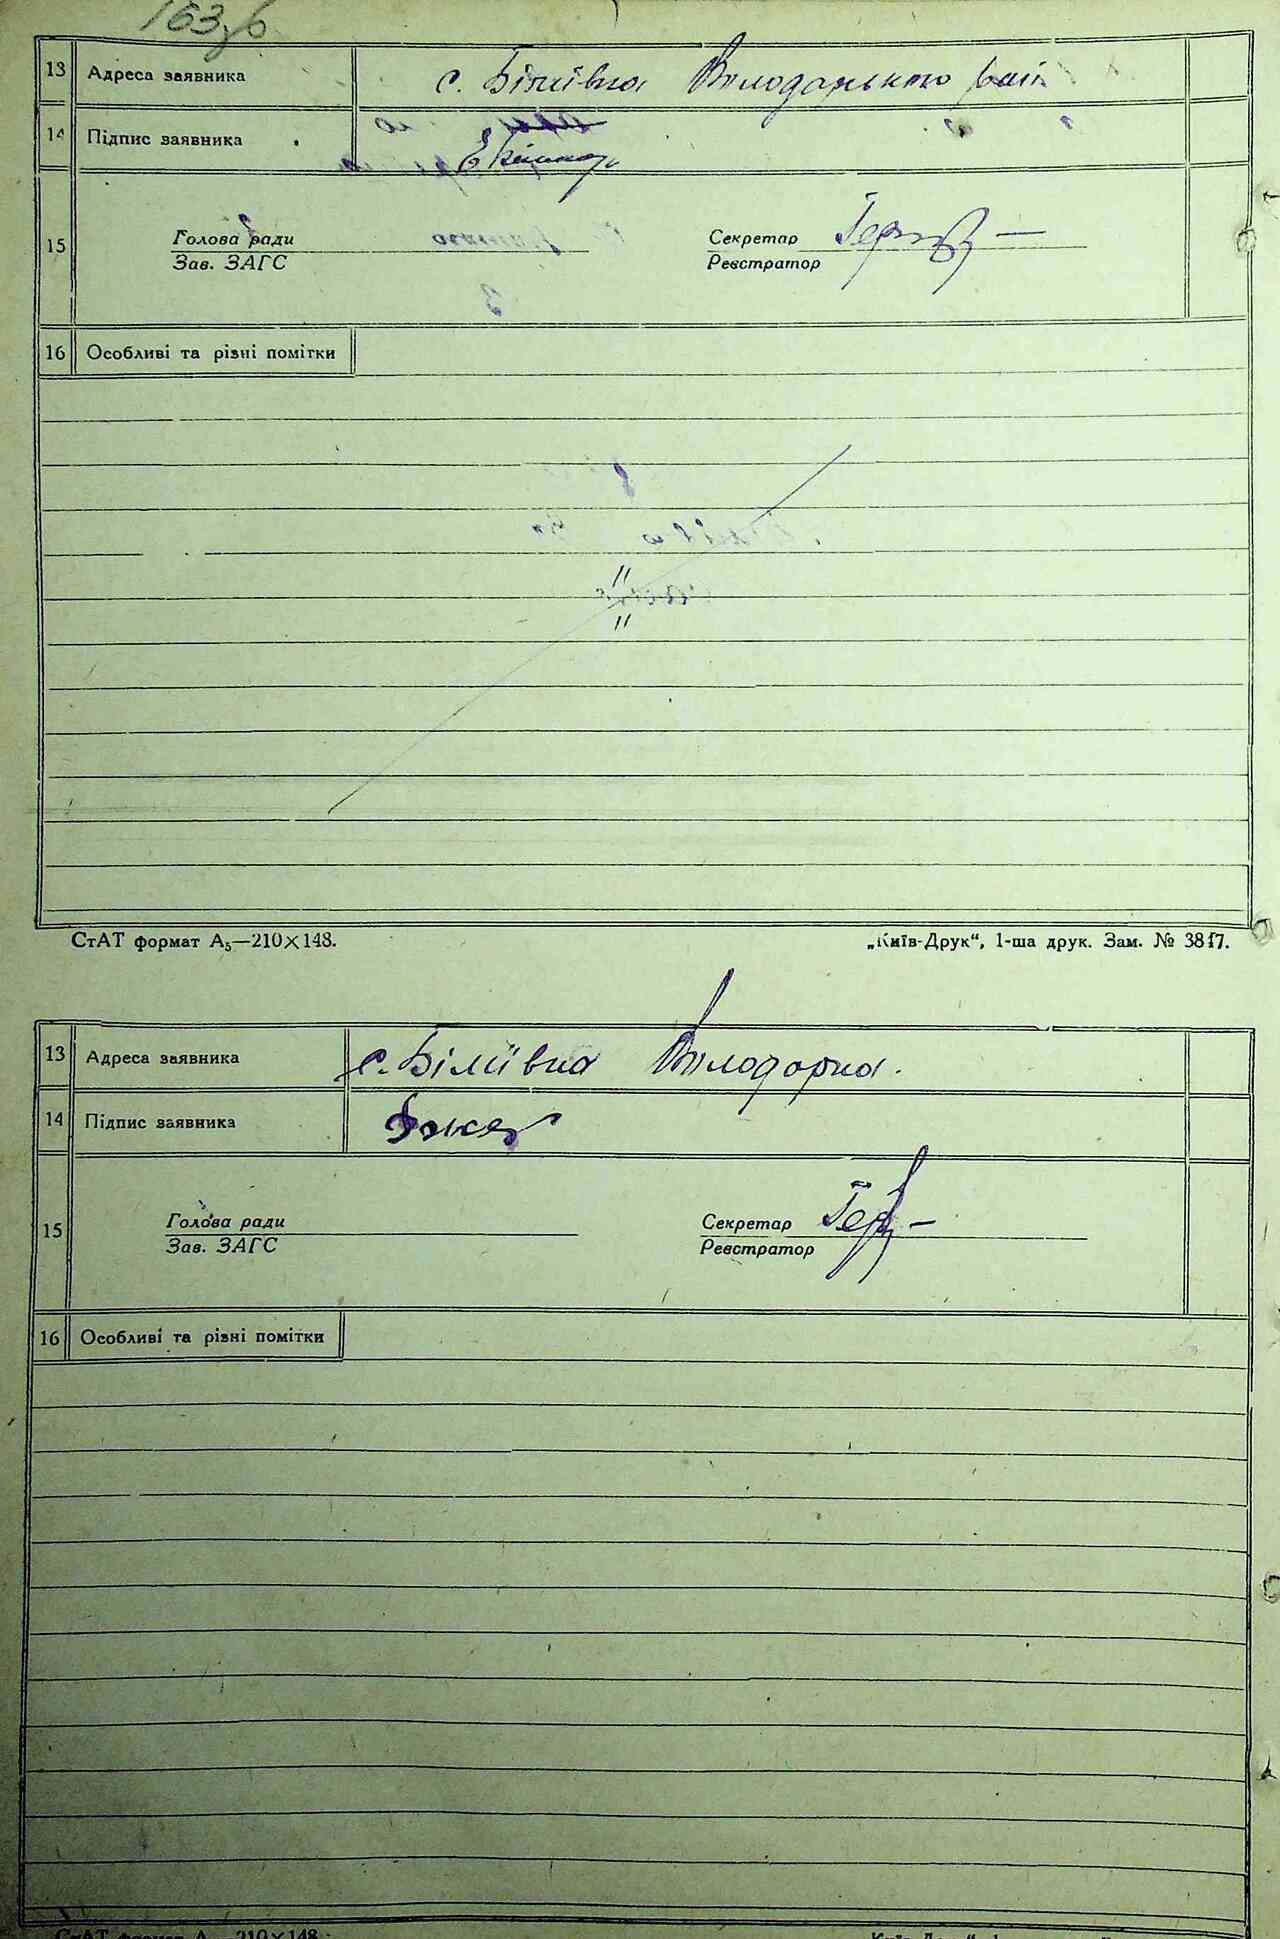 163
13 Адреса заявника с. Біліївка Володарського
14 Підпис заявника
15 Голова ради Секретар
Зав. ЗАГС Реєстратор
16 Особливі та різні помітки
СтАТ формат А5—210×148. „Київ-Друк“, 1-ша друк. Зам. № 3817.
13 Адреса заявника с. Біліївка Володарка.
14 Підпис заявника
15 Голова ради Секретар
Зав. ЗАГС Реєстратор
16 Особливі та різні помітки
СтАТ формат А 210×148.